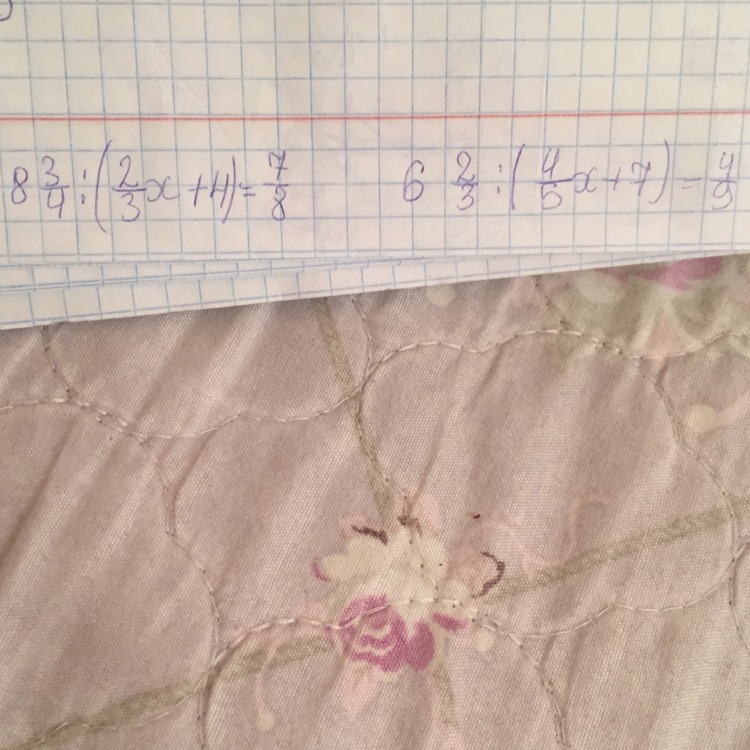 8 3/4 : (2/3 x + 4) = 7/8    6 2/3 : (4/5 x + 7) = 4/9